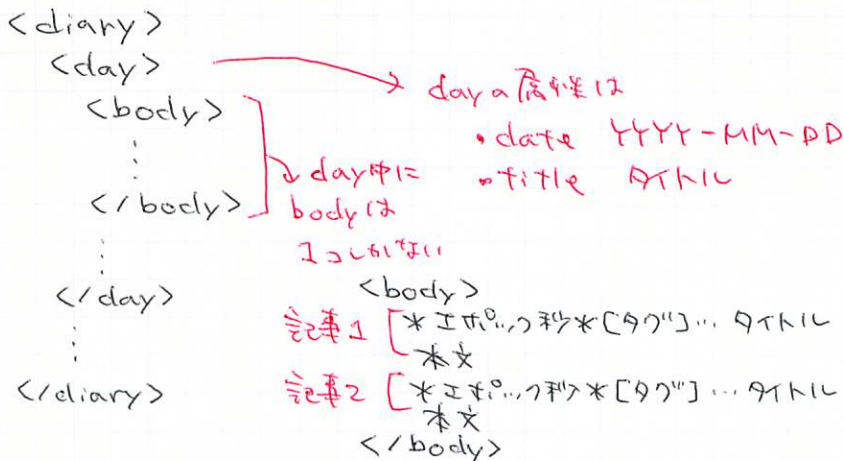 <diary>
<day>
<body>
⋮
</body>
⋮
</day>
⋮
</diary>
dayの属性は
・date YYYY-MM-DD
・title タイトル
day中に
bodyは
1コしかない
<body>
記事1 [*エポック秒*[タグ]… タイトル
本文
記事2 [*エポック秒*[タグ]… タイトル
本文
</body>